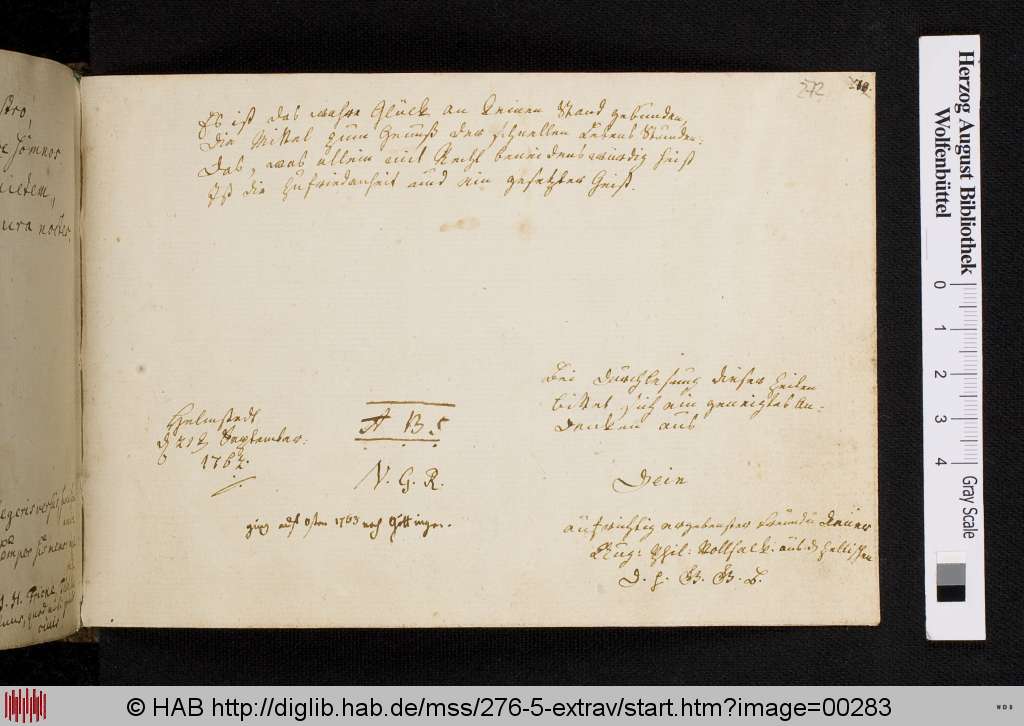 272
Es ist das wahre Glück an keinen Stand gebunden,
Die Mittel zum Genuß der schnellen Lebens Stunden:
Das, was allein mit Recht beneidenswürdig heist
Ist die Zufriedenheit und ein gesetzter Geist.
Bei Durchlesung dieser Zeilen
bittet sich ein geneigtes An-
denken aus
Helmstedt
September.
1762.
A B 5
N. G. R.
ging auf Ostern 1763 nach Göttingen.
Dein
aufrichtig ergebenster Freund u Diener
Aug: Phil:
D. G. G. B.
stro,
Somnos
uietem,
ura noctes.
Semper
J. H.
Herzog August Bibliothek
Wolfenbüttel
0 1 2 3 4
Gray Scale
© HAB http://diglib.hab.de/mss/276-5-extrav/start.htm?image=00283
WDB